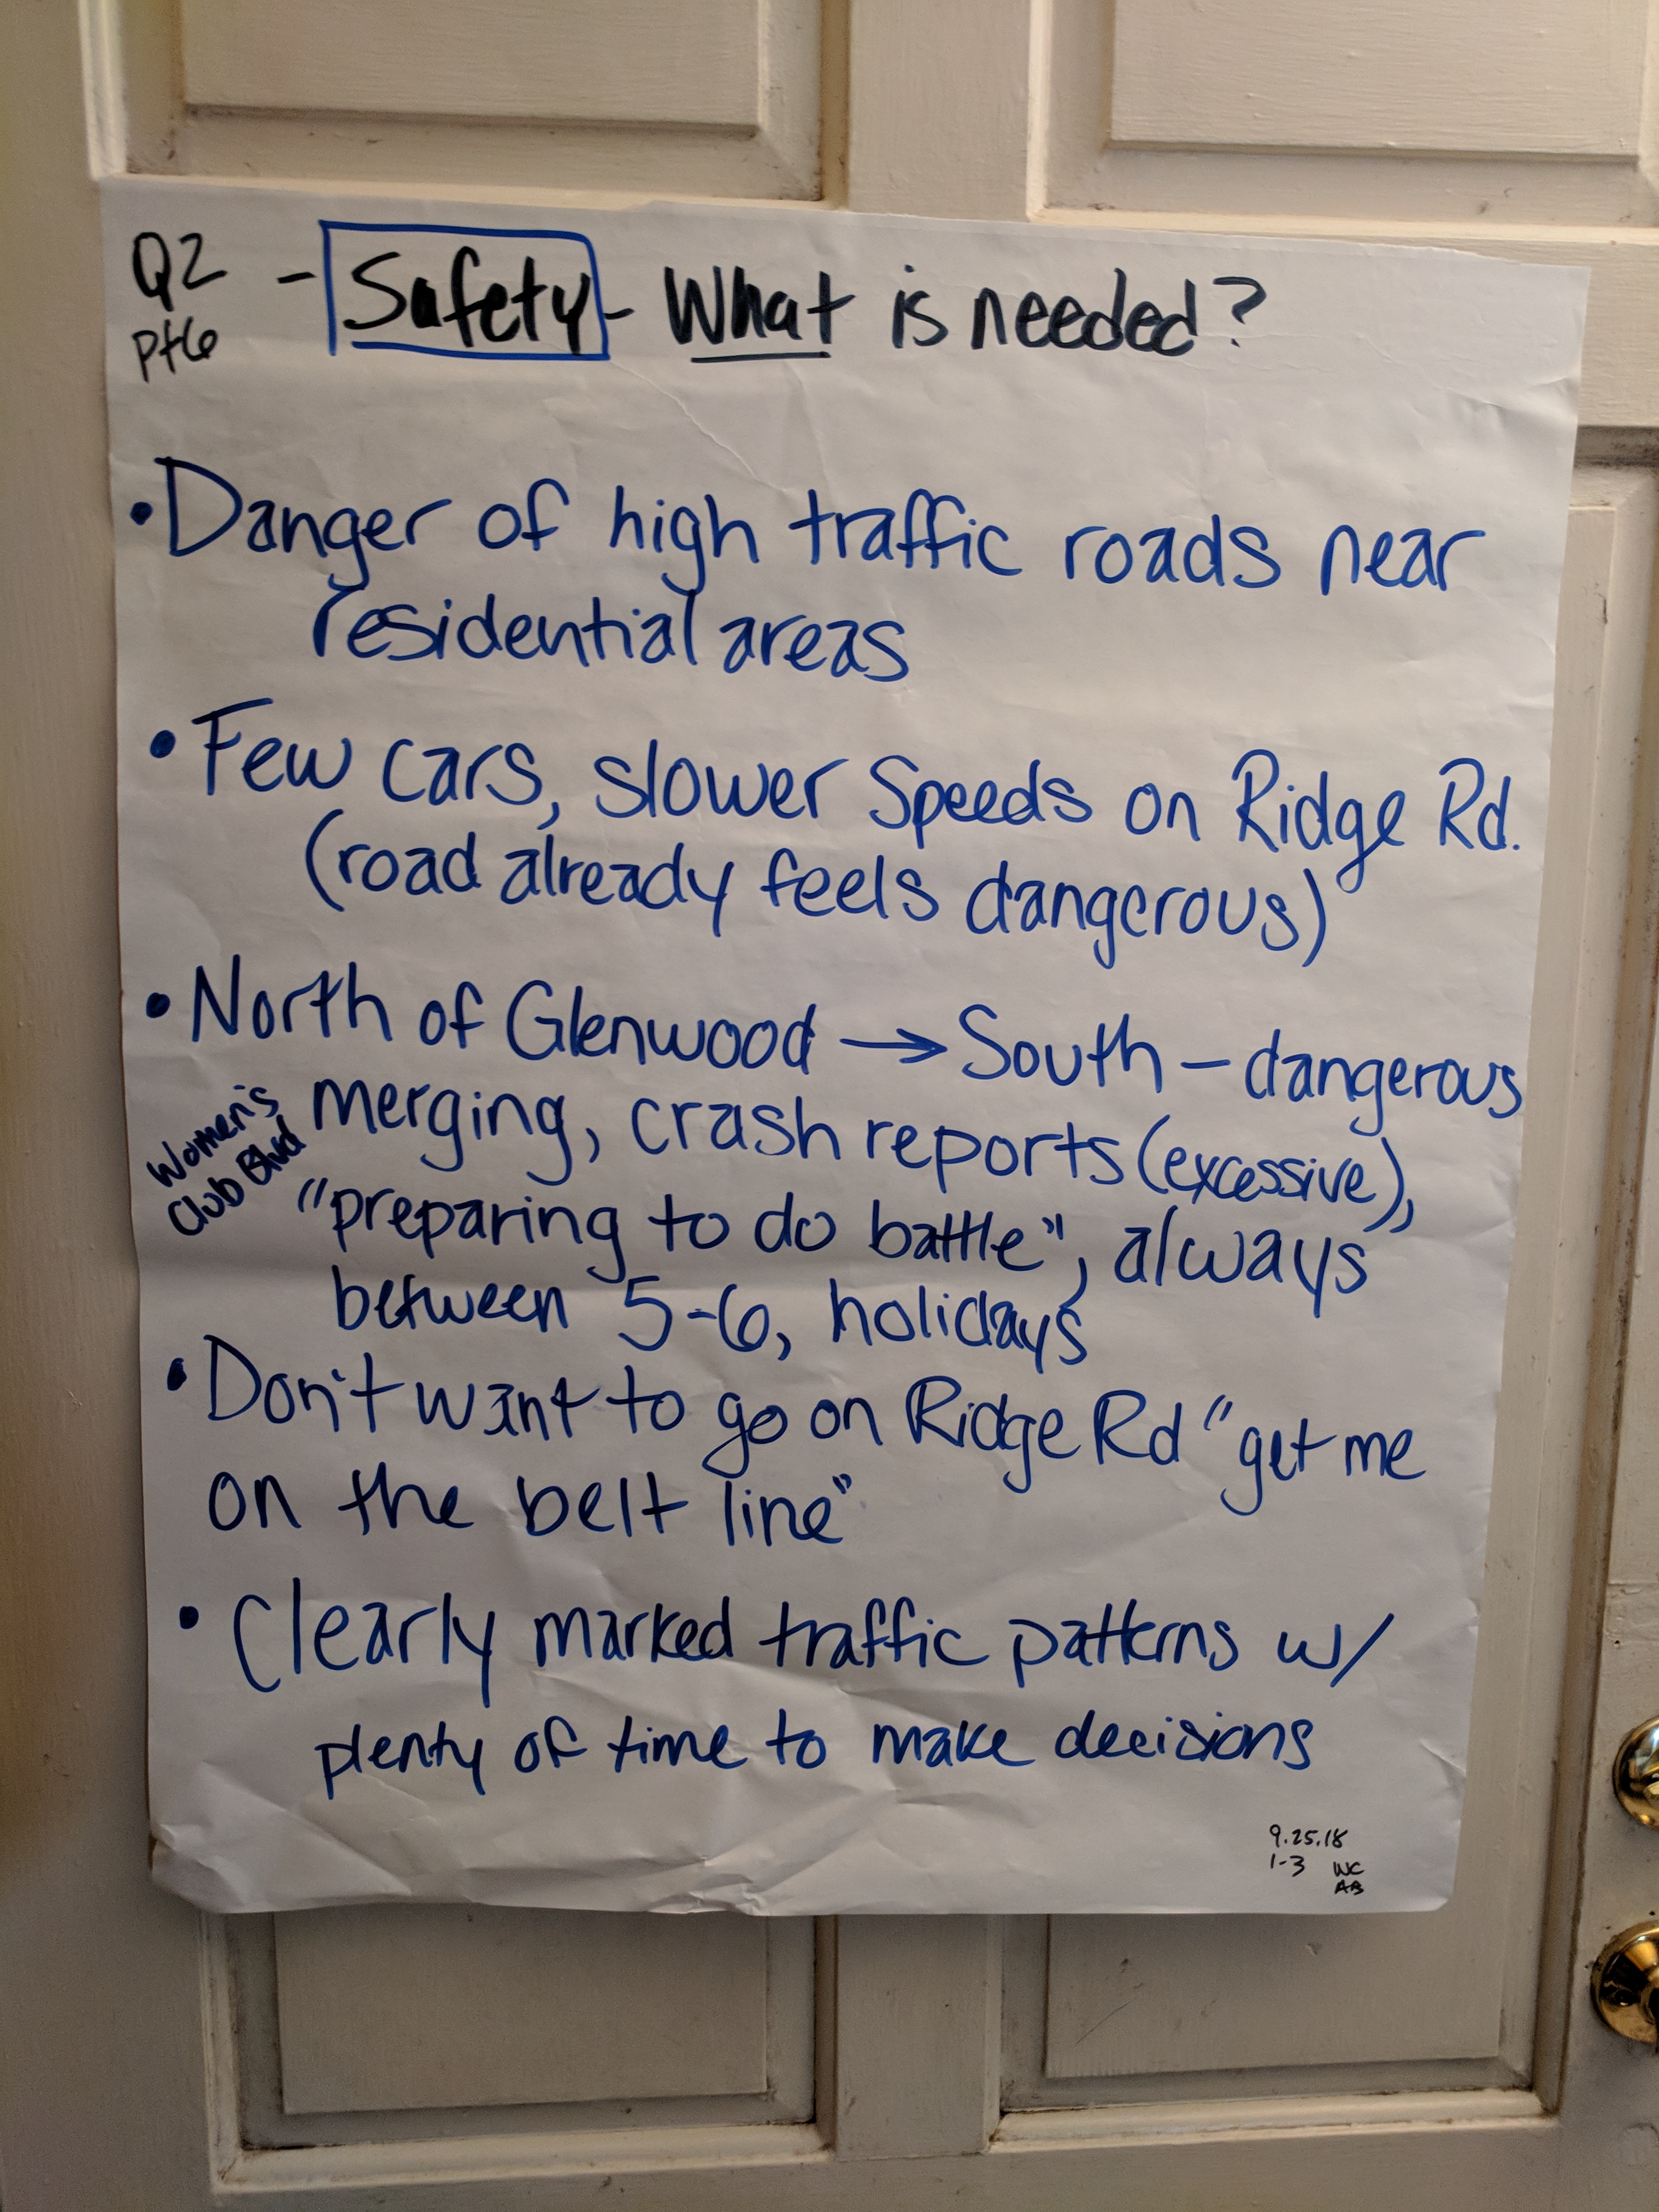 Q2 - Safety - What is needed?
pt6
• Danger of high traffic roads near
residential areas
• Few cars, slower speeds on Ridge Rd.
(road already feels dangerous)
• North of Glenwood → South - dangerous
Women's
Club Blvd
merging, crash reports (excessive),
"preparing to do battle", always
between 5-6, holidays
• Don't want to go on Ridge Rd "get me
on the belt line"
• Clearly marked traffic patterns w/
plenty of time to make decisions
9.25.18
1-3 WC
AB